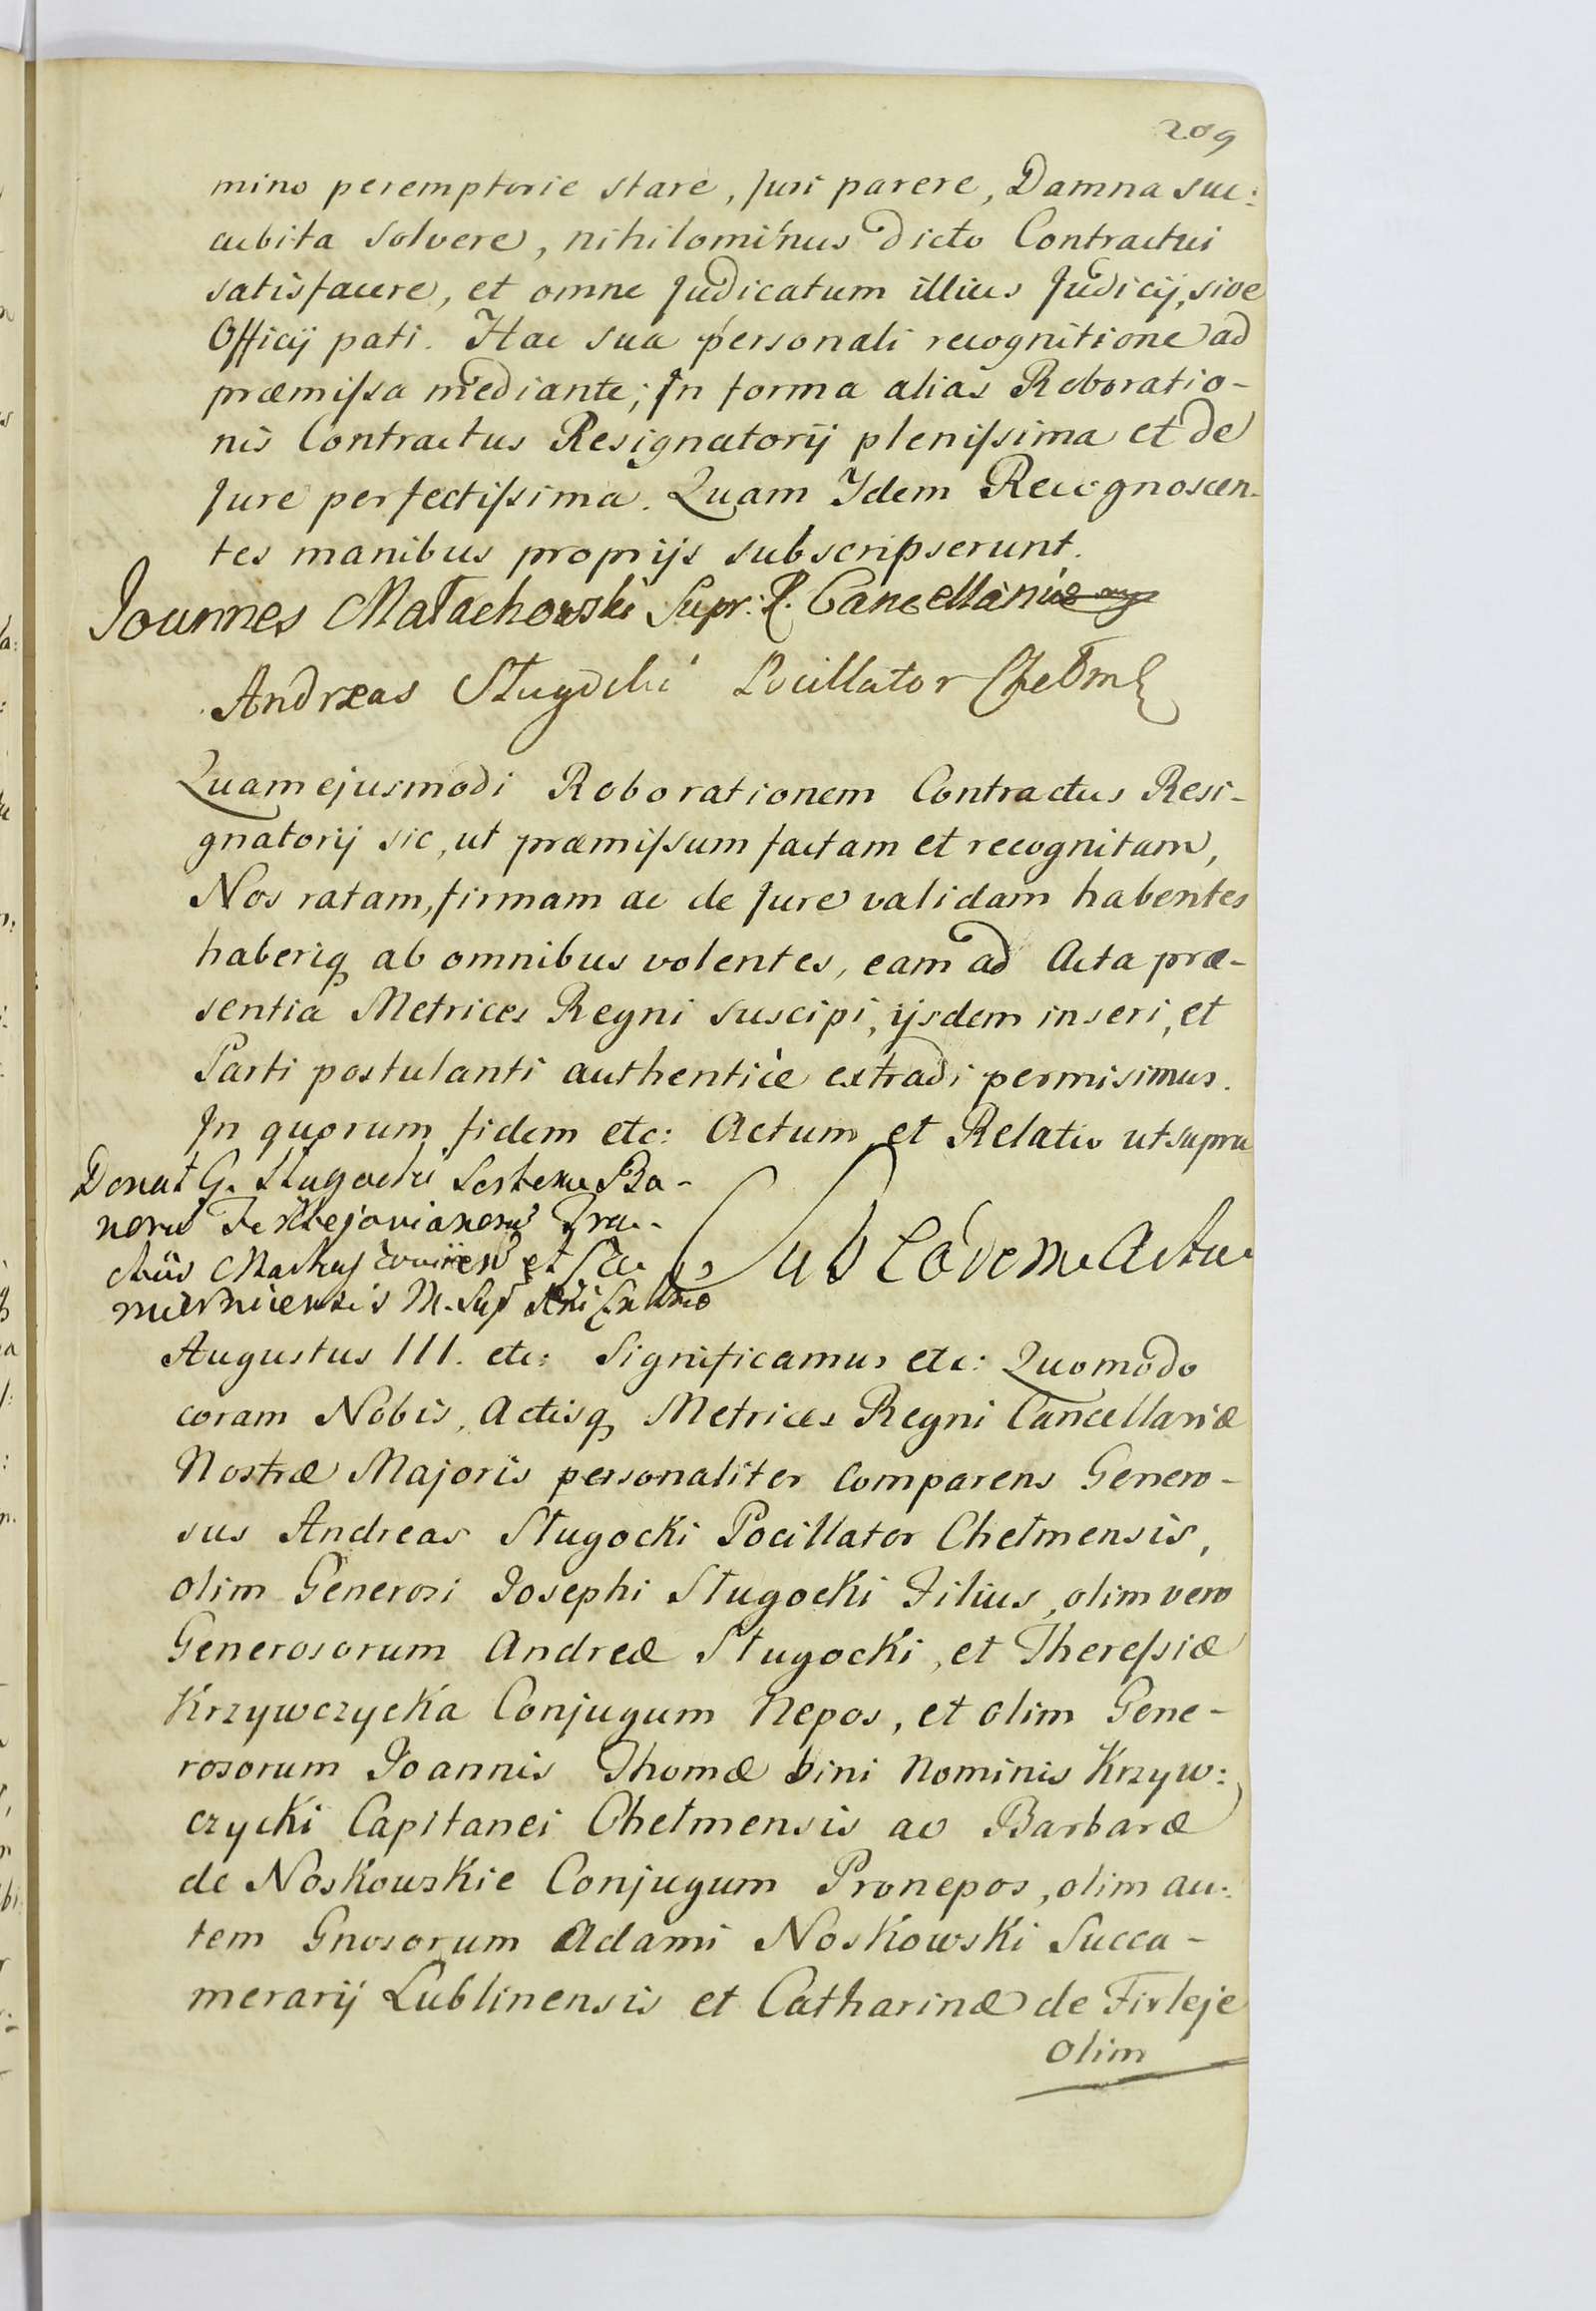 209
mino peremptorie stare, Juri parere, Damna suc:
cubita solvere, nihilominus dicto Contractui
satisfacere, et omne Judicatum illius Judicij, sive
Officij pati. Hac sua personali recognitione ad
præmissa mediante; In forma alias Roboratio-
nis Contractus Resignatorij plenissima et de
Jure perfectissima. Quam Idem Recognoscen-
tes manibus proprijs subscripserunt.
Joannes Małachowski Supr: R. Cancellarius
Andreas Sługocki Pocillator Chełm
Quam ejusmodi Roborationem Contractus Resi-
gnatorij sic, ut præmissum factam et recognitam,
Nos ratam, firmam ac de Jure validam habentes
haberiq ab omnibus volentes, eam ad Acta præ-
sentia Metrices Regni suscipi, ijsdem inseri, et
Parti postulanti authentice extradi permisimus.
In quorum fidem etc: Actum et Relatio ut supra
Donat G. Sługocki Bo-
norum et
M.
Sub Eodem Actu
Augustus III. etc: Significamus etc: Quomodo
coram Nobis, Actisq Metrices Regni Cancellariæ
Nostræ Majoris personaliter Comparens Genero-
sus Andreas Sługocki Pocillator Chełmensis,
olim Generosi Josephi Sługocki Filius, olim vero
Generosorum Andreæ Sługocki, et Theressiæ
Krzywczycka Conjugum Nepos, et olim Gene-
rosorum Joannis Thomæ bini Nominis Krzyw:
czycki Capitanei Chełmensis ac Barbaræ
de Noskowskie Conjugum Pronepos, olim au:
tem Gnosorum Adami Noskowski Succa-
merarij Lublinensis et Catharinæ de Firleje
olim